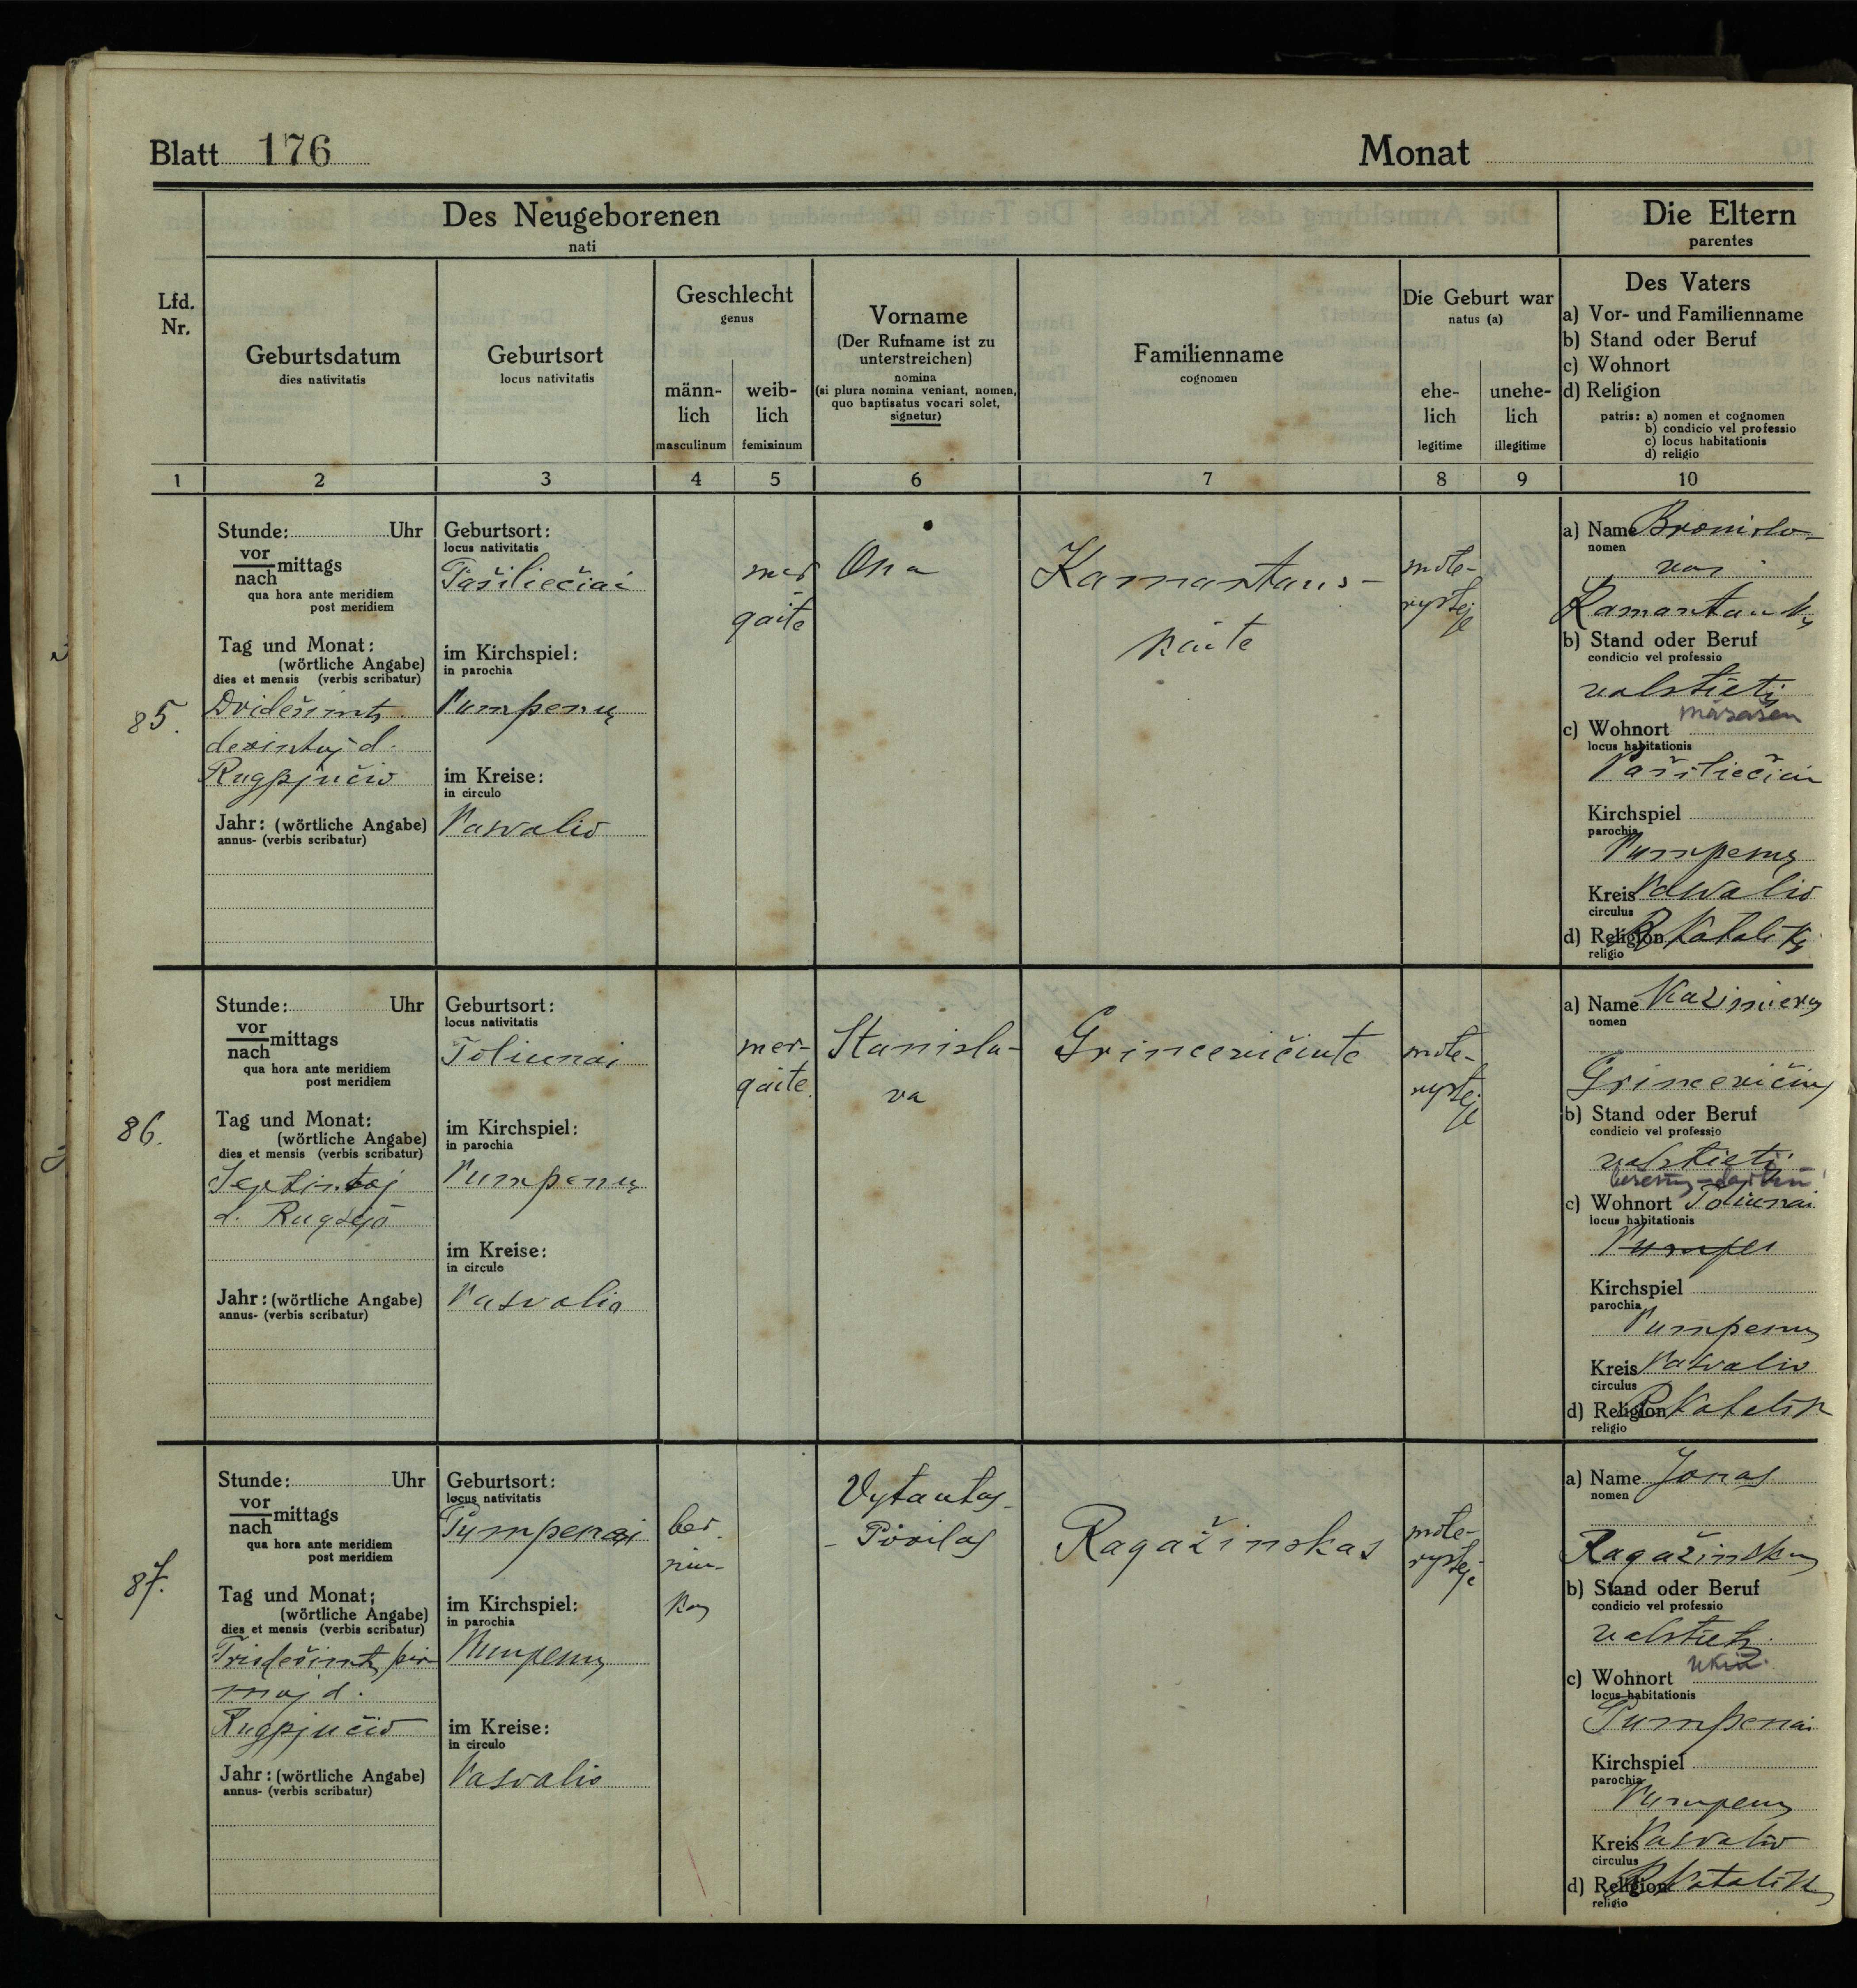 Blatt 176 Monat
Des Neugeborenen
nati
Die Eltern
parentes
Lfd.
Nr.
Geburtsdatum
dies nativitatis
Geburtsort
locus nativitatis
Geschlecht
genus
männ-
lich
masculinum
weib-
lich
femininum
Vorname
(Der Rufname ist zu
unterstreichen)
nomina
(si plura nomina veniant, nomen,
quo baptisatus vocari solet,
signetur)
Familienname
cognomen
Die Geburt war
natus (a)
ehe-
lich
legitime
unehe-
lich
illegitime
Des Vaters
a) Vor- und Familienname
b) Stand oder Beruf
c) Wohnort
d) Religion
patris: a) nomen et cognomen
b) condicio vel professio
c) locus habitationis
d) religio
1 2 3 4 5 6 7 8 9 10
85.
Stunde: Uhr
vor
nach mittags
qua hora ante meridiem
post meridiem
Tag und Monat:
(wörtliche Angabe)
dies et mensis (verbis scribatur)
Dvidešimts
devintoj d.
Rugpjučio
Jahr: (wörtliche Angabe)
annus- (verbis scribatur)
Geburtsort:
locus nativitatis
Pašiliečiai
im Kirchspiel:
in parochia
Pumpenų
im Kreise:
in circulo
Pasvalio
mer
gaite
Ona
Ramantaus-
kaite
mote-
rystėj
je
a) Name Bronislo-
nomen
vas
Ramantausk
b) Stand oder Beruf
condicio vel professio
valstieti
c) Wohnort
locus habitationis
Pašiliečiai
Kirchspiel
parochia
Pumpenų
Kreis Pasvalio
circulus
d) Religion R Katalik
religio
86.
Stunde: Uhr
vor
nach mittags
qua hora ante meridiem
post meridiem
Tag und Monat:
(wörtliche Angabe)
dies et mensis (verbis scribatur)
Septintoj
d. Rugsėjo
Jahr: (wörtliche Angabe)
annus- (verbis scribatur)
Geburtsort:
locus nativitatis
Toliunai
im Kirchspiel:
in parochia
Pumpenų
im Kreise:
in circulo
Pasvalio
mer-
gaite
Stanisla-
va
Grincevičiute
mote-
rystėj
je
a) Name Kazimieras
nomen
Grincevičius
b) Stand oder Beruf
condicio vel professio
valstieti
c) Wohnort Toliunai
locus habitationis
Pumpe
Kirchspiel
parochia
Pumpenų
Kreis Pasvalio
circulus
d) Religion R Katalik
religio
87.
Stunde: Uhr
vor
nach mittags
qua hora ante meridiem
post meridiem
Tag und Monat:
(wörtliche Angabe)
dies et mensis (verbis scribatur)
Trisdešimts pir-
moj d.
Rugpjučio
Jahr: (wörtliche Angabe)
annus- (verbis scribatur)
Geburtsort:
locus nativitatis
Pumpenai
im Kirchspiel:
in parochia
Pumpenų
im Kreise:
in circulo
Pasvalio
ber-
niu-
kas
Vytautas-
- Povilas
Ragažinskas
mote-
rystėje
a) Name Jonas
nomen
Ragažinskas
b) Stand oder Beruf
condicio vel professio
valstieti
ukin.
c) Wohnort
locus habitationis
Pumpenai
Kirchspiel
parochia
Pumpenų
Kreis Pasvalio
circulus
d) Religion R Katalik
religio